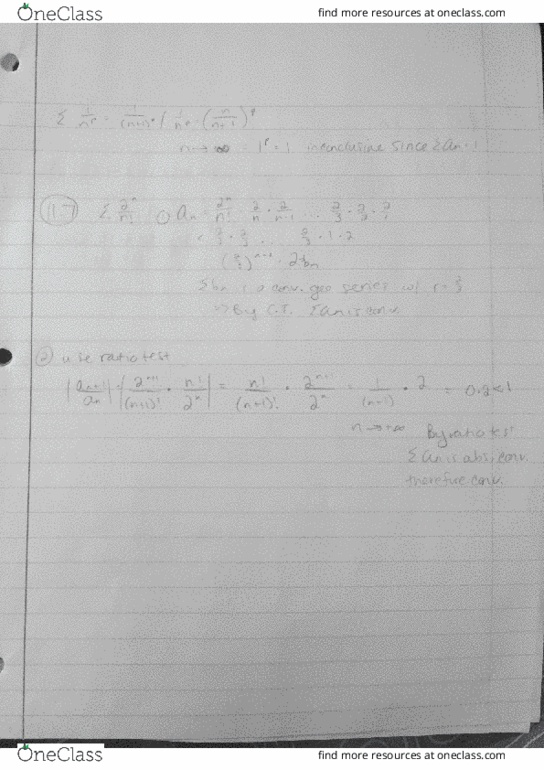 OneClass find more resources at oneclass.com
Σ 1/n^p 1/(n+1)^p / 1/n^p · (n/n+1)^p
n→∞ 1^p = 1 inconclusive since
Σ 2^n/n! ① an = 2^n/n! = 2/n · 2/n-1 ... 2/3 · 2/2 · 2/1
... · 1 · 2
· 2 = bn
Σbn is a conv. geo series w/ r =
By C.T. Σan is conv.
② use ratio test
|an+1/an| |2^n+1/(n+1)! · n!/2^n| = n!/(n+1)! · 2^n+1/2^n = 1/(n+1) · 2 = 0 · 2 < 1
n→∞ By ratio test
Σan is abs. conv.
therefore conv.
OneClass find more resources at oneclass.com